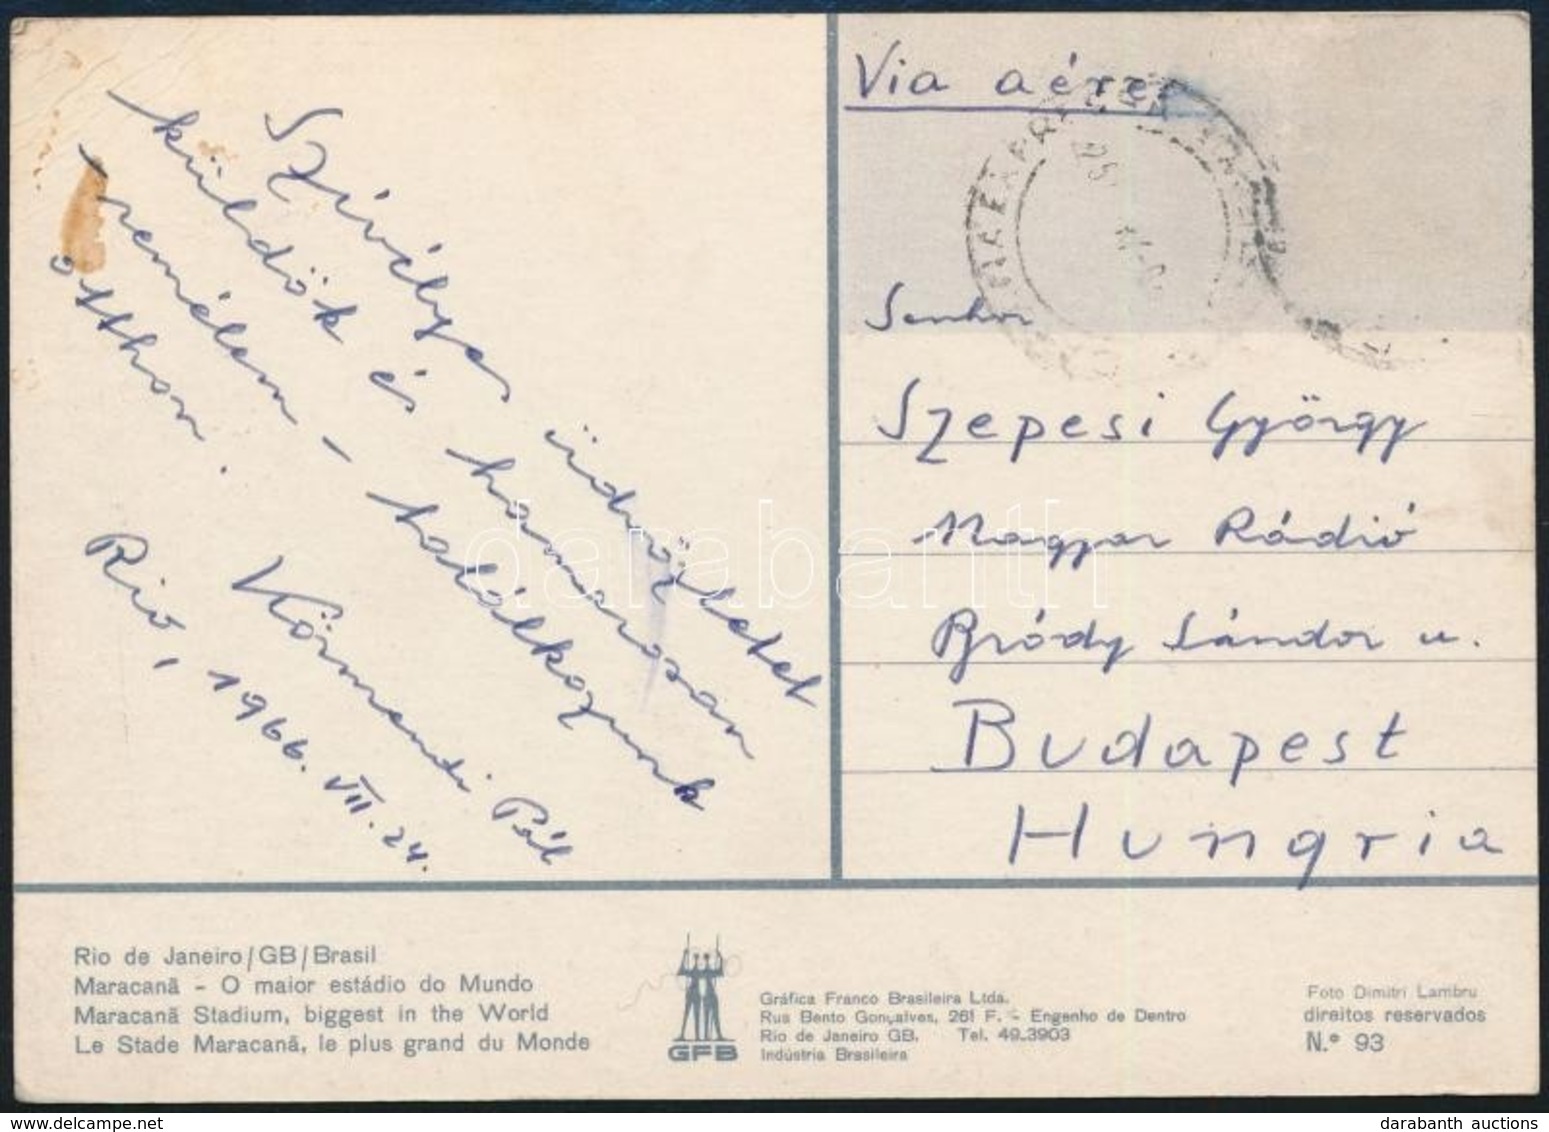 Szívélyes üdvözletet
küldök és hamarosan
remélem – találkozunk
otthon.
Körmendi Pál
Rio, 1966. VII. 24.
Via aérea
Senhor
Szepesi György
Magyar Rádió
Bródy Sándor u.
Budapest
Hungria
darabanth
Rio de Janeiro/GB/Brasil
Maracanã - O maior estádio do Mundo
Maracanã Stadium, biggest in the World
Le Stade Maracanã, le plus grand du Monde
GFB
Gráfica Franco Brasileira Ltda.
Rua Bento Gonçalves, 261 F. - Engenho de Dentro
Rio de Janeiro GB. Tel. 49.3903
Indústria Brasileira
Foto Dimitri Lambru
direitos reservados
N.º 93
darabanth auctions